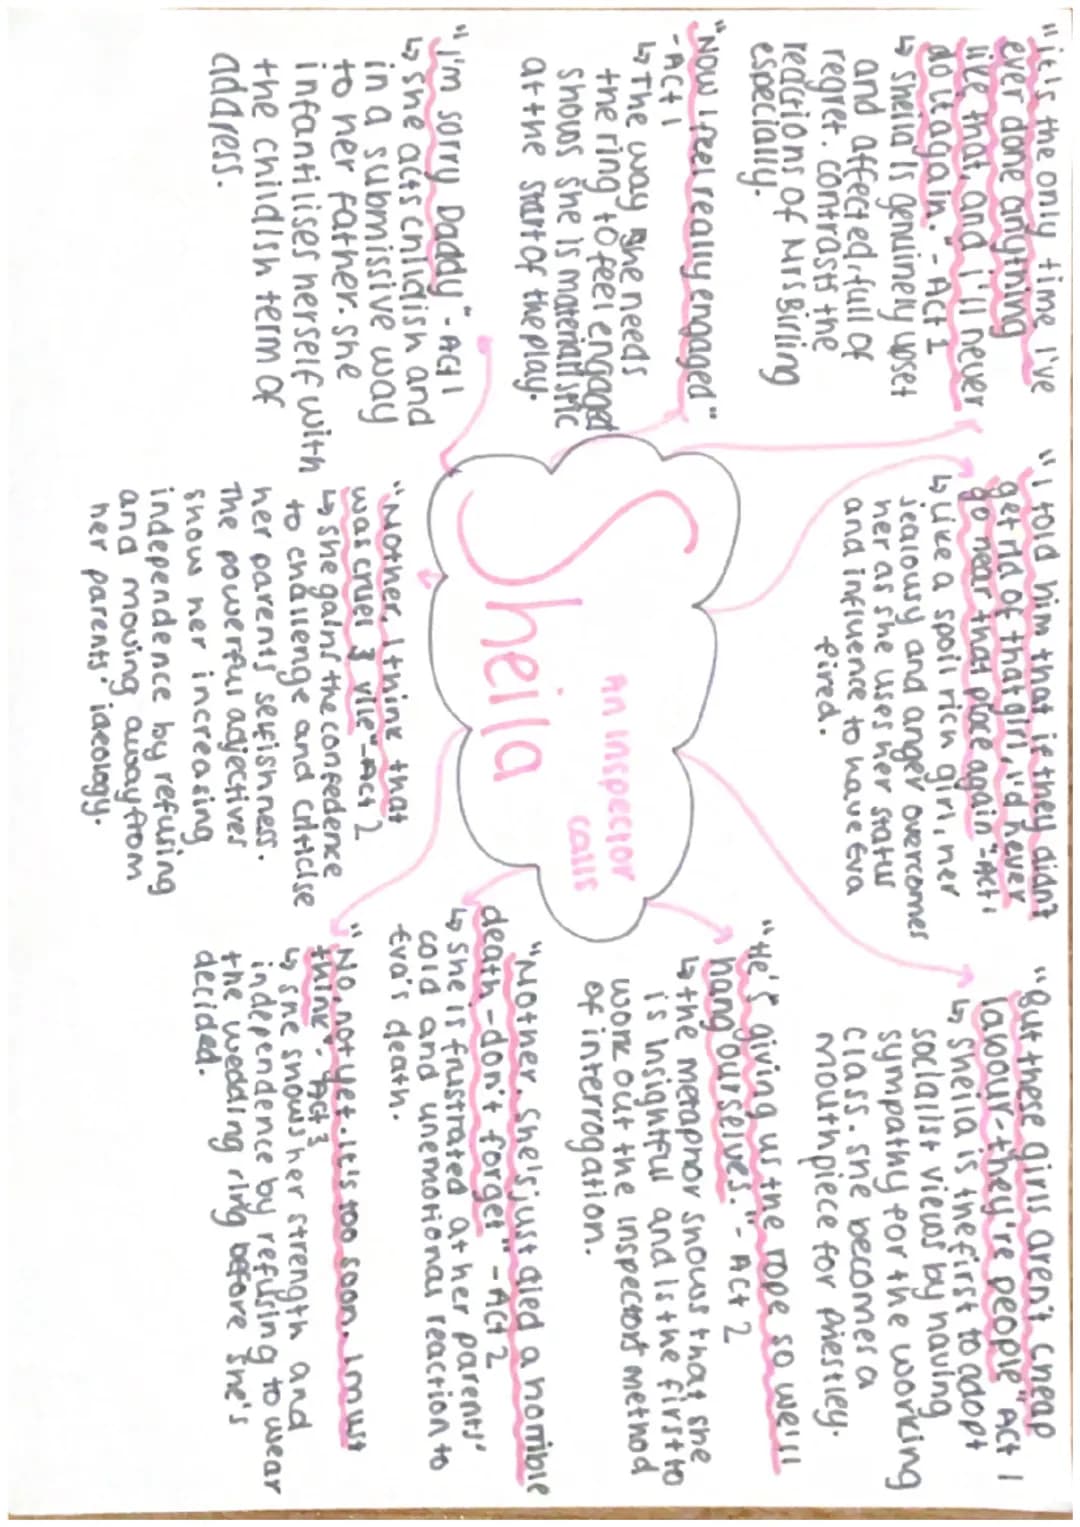 "it's the only time I've
ever done anything
like that, and I'll never
do it again." - Act 1
↳ Sheila is genuinely upset
and affected, full of
regret. contrasts the
reactions of Mrs Birling
especially.
"Now I feel really engaged"
- Act 1
↳ The way she needs
the ring to feel engaged
shows she is materialistic
at the start of the play.
"I'm sorry Daddy" - Act 1
↳ she acts childish and
in a submissive way
to her father. she
infantilises herself with
the childish term of
address.
"I told him that if they didn't
get rid of that girl, I'd never
go near that place again" - Act 1
↳ Like a spoil rich girl, her
jealousy and anger overcomes
her as she uses her status
and influence to have Eva
fired.
An Inspector
calls
Sheila
"Mother, I think that
was cruel & vile" - Act 2
↳ she gains the confedence
to challenge and criticise
her parents selfishness.
The powerful adjectives
show her increasing
independence by refusing
and moving away from
her parents' ideology.
"But these girls aren't cheap
labour - they're people" Act 1
↳ Sheila is the first to adopt
socialist views by having
sympathy for the working
class. she becomes a
mouthpiece for Priestley.
"He's giving us the rope so we'll
hang ourselves." - Act 2
↳ the metaphor shows that she
is insightful and is the first to
work out the inspectors method
of interrogation.
"Mother, she's just died a horrible
death - don't forget" - Act 2
↳ she is frustrated at her parents'
cold and unemotional reaction to
Eva's death.
"No, not yet. It's too soon. I must
think." Act 3
↳ she shows her strength and
independence by refusing to wear
the wedding ring before she's
decided.